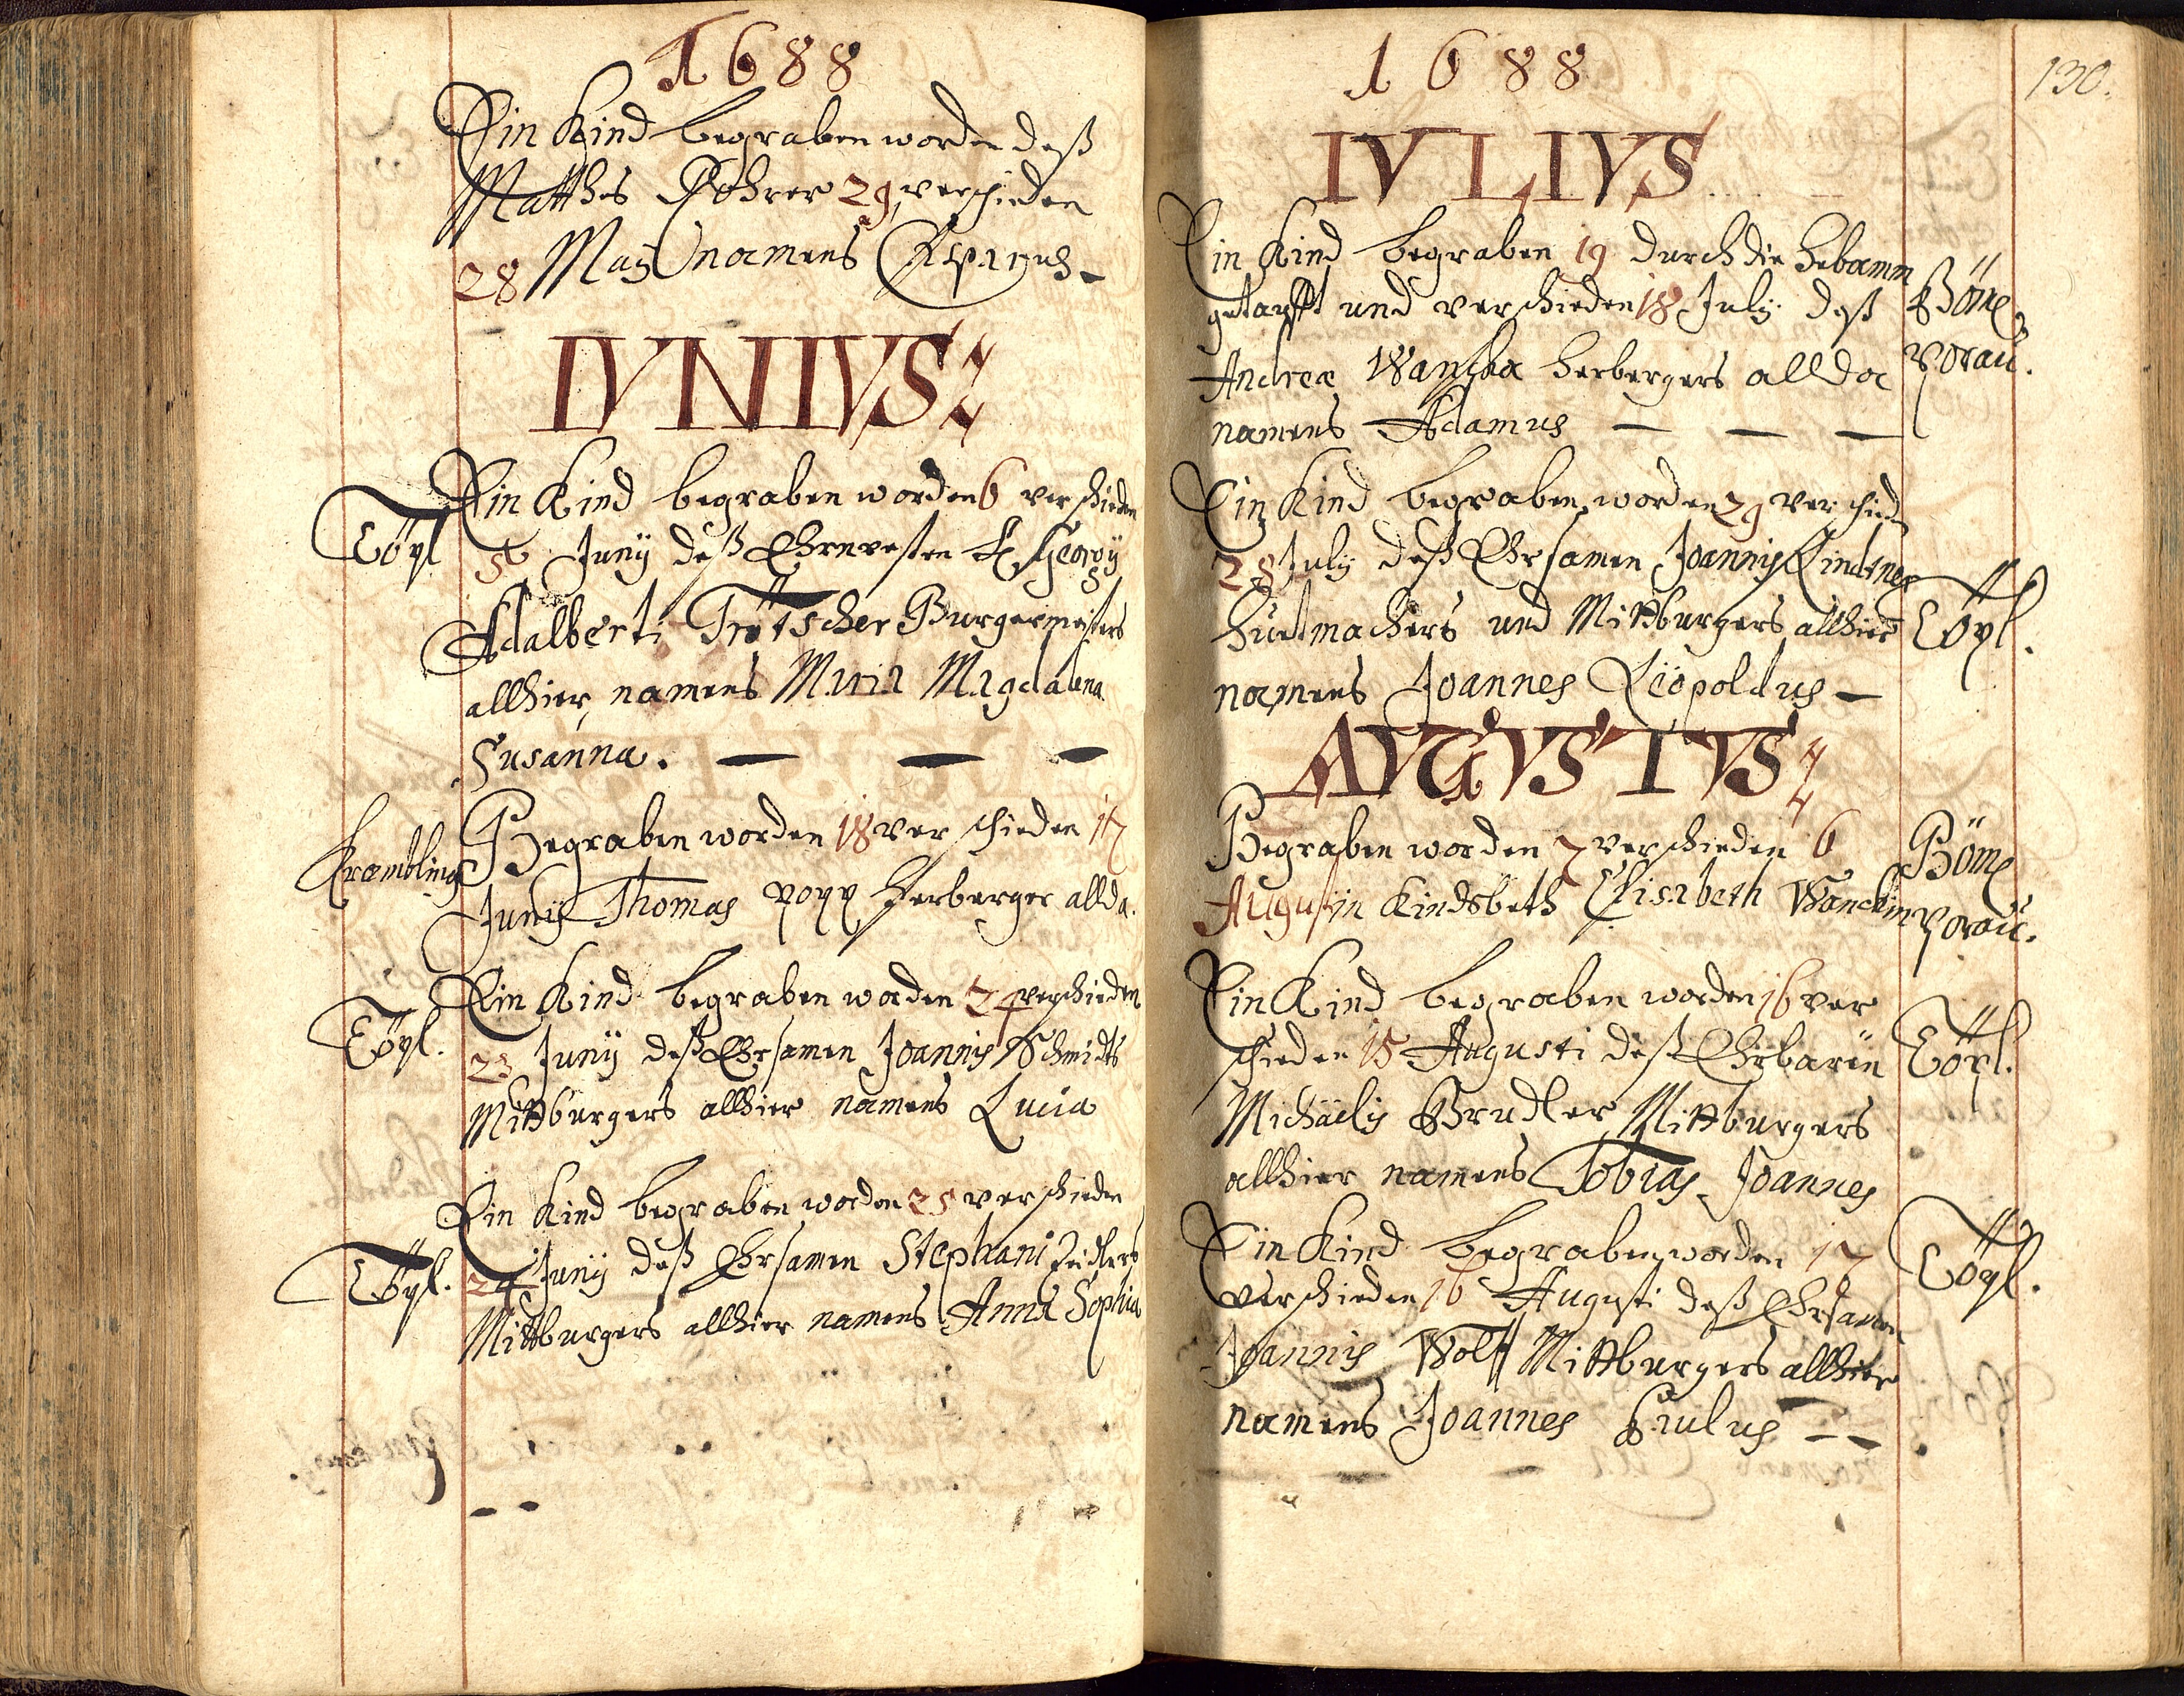 1688
Ein Kind begraben worden deß
Matthes 29 verschieden
28 Maij namens Casparus
IVNIVS
Töpl
Ein Kind begraben worden 6 verschieden
5 Junij deß Ehrnvesten H. Georgij
Adalberti Trötscher Burgermeisters
allhier, namens Maria Magdalena
Susanna.
Krambling
Begraben worden 18 verschieden 17
Junij Thomas Popp Herberger allda.
Töpl.
Ein Kind begraben worden 24 verschieden
23 Junij deß Ehrsamen Joannis Schmidts
Mittburgers allhier namens Lucia
Töpl.
Ein Kind begraben worden 25 verschieden
24 Junij deß Ehrsamen Stephani Zeidlers
Mittburgers allhier namens Anna Sophia
130.
1688
IVLIVS
Ein Kind begraben 19 durch die Hebamm
getaufft und verschieden 18 July deß
Andreæ Wanska Herbergers allda
namens Adamus
Böm
Borau.
Ein Kind begraben worden 29 verschieden
28 July deß Ehrsamen Joannis Lindtner
Huetmachers und Mittburgers allhier
namens Joannes Leopoldus
Töpl.
AVGVSTVS
Begraben worden 7 verschieden 6
Augusti in Kindsbeth Elisabeth Wanckin
Böm
Borau.
Ein Kind begraben worden 16 ver
schieden 15 Augusti deß Ehrbaren
Michaelis Brudler Mittburgers
allhier namens Tobias Joannes
Töpl.
Ein Kind begraben worden 17
verschieden 16 Augusti deß Ehrsamen
Joannis Wolff Mittburgers allhier
namens Joannes Paulus
Töpl.